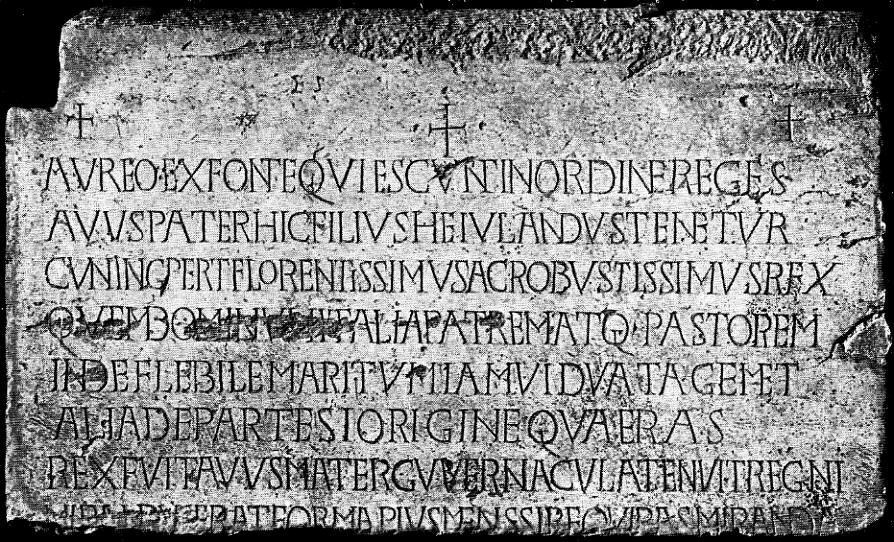 ES
AVREO·EXFONTEQVIESCVNTINORDINEREGES
AVVSPATERHICFILIVSHEIVLANDVSTENETVR
CVNINCPERTFLORENTISSIMVSACROBVSTISSIMVSREX
QVEMDOMINVMITALIAPATREMATQ·PASTOREM
INDEFLEBILEMARITVMIAMVIDVATAGEMET
ALIADEPARTESIORIGINEQVAERAS
REXFVITAVVSMATERGVVERNACVLATENVITREGNI
MIRANDVSERATFORMAPIVSMENSSIREQVIRASMIRANDA